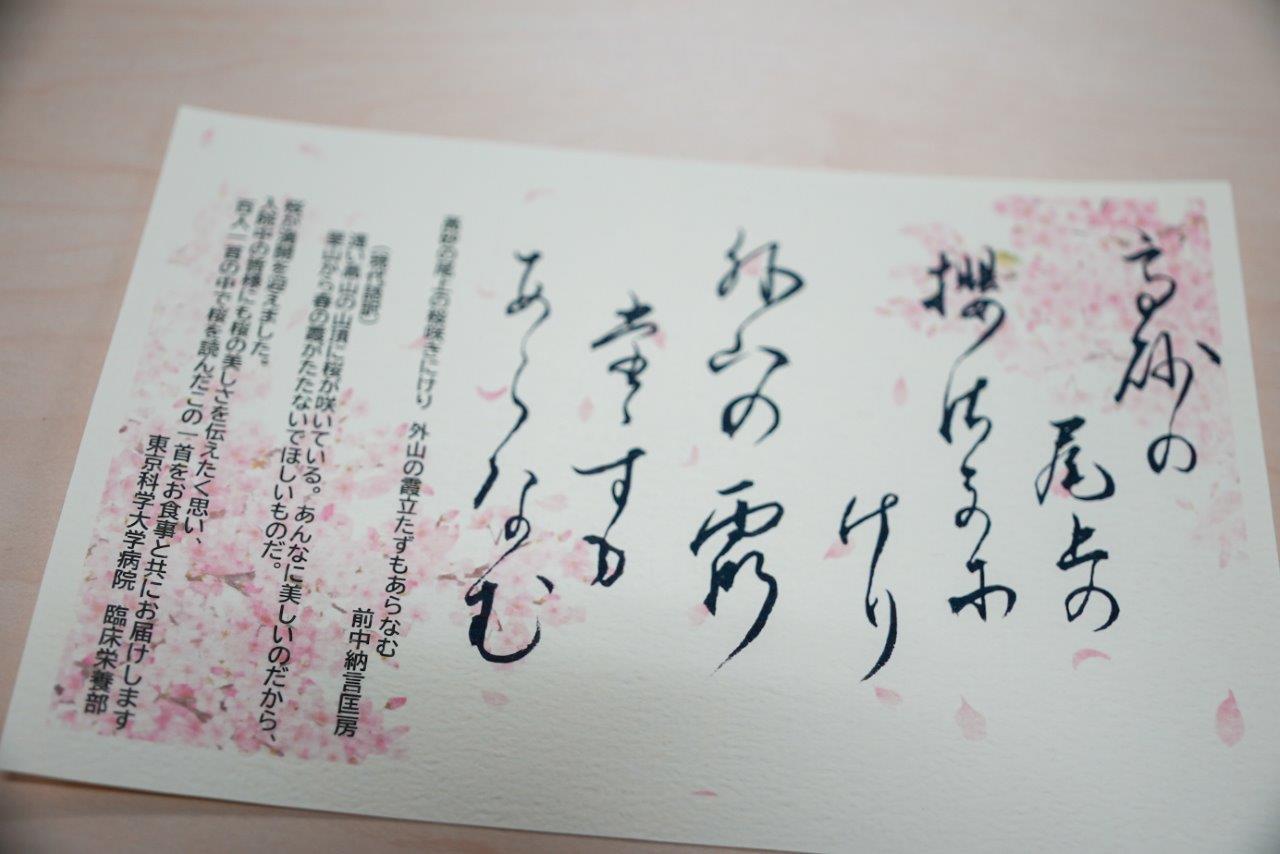 高砂の
尾上の
櫻佐支尓
けり
外山の霞
堂ゝすも
あらなむ
高砂の尾上の桜咲きにけり　外山の霞立たずもあらなむ
前中納言匡房
（現代語訳）
遠い高山の山頂に桜が咲いている。あんなに美しいのだから、
里山から春の霞がたたないでほしいものだ。
桜が満開を迎えました。
入院中の皆様にも桜の美しさを伝えたく思い、
百人一首の中で桜を読んだこの一首をお食事と共にお届けします
東京科学大学病院　臨床栄養部